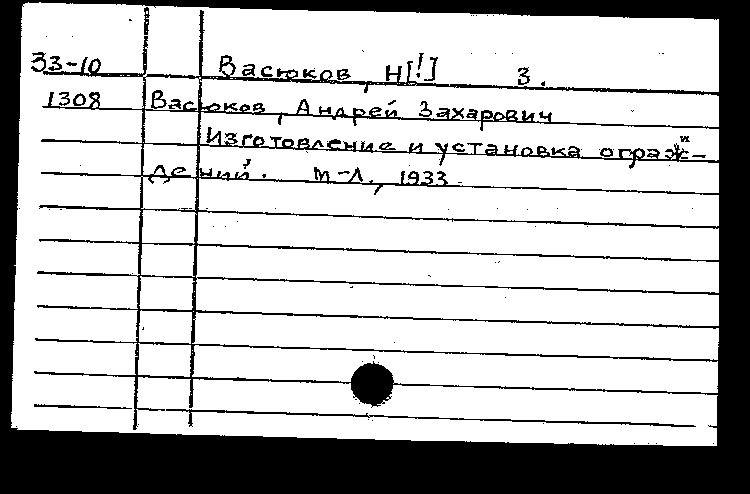 33-10 Васюков, Н[!] З.
1308 Васюков, Андрей Захарович
Изготовление и установка ограж-
дений. М-Л., 1933